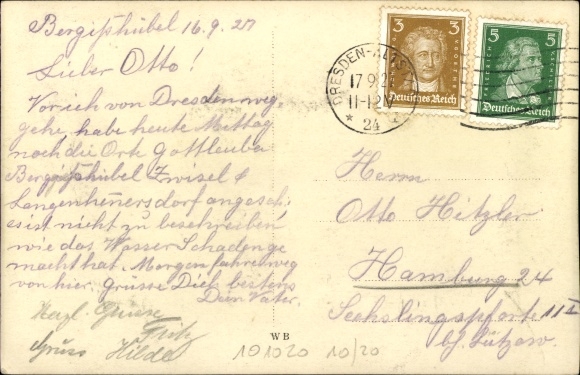 Bergißhübel 16.9.27
Lieber Otto!
Vor ich von Dresden weg
gehe, habe heute Mittag
noch die Orte Gottleuba
Bergißhübel Zwisel &
Langenhenersdorf angesch.
es ist nicht zu beschreiben
wie das Wasser Schaden ge
macht hat. Morgen fahre weg
von hier. Grüsse Dich bestens
Dein Vater.
Herzl. Grüsse
Fritz
Gruss Hilde
DRESDEN-ALTST.
17.9.27
11-12
* 24
3 3
Deutsches Reich
5 5
FRIEDRICH
Deutsches Reich
Herrn
Otto Hitzler
Hamburg 24
Sechslingspforte 11 I
b/ Lützow.
WB
101020 10/20